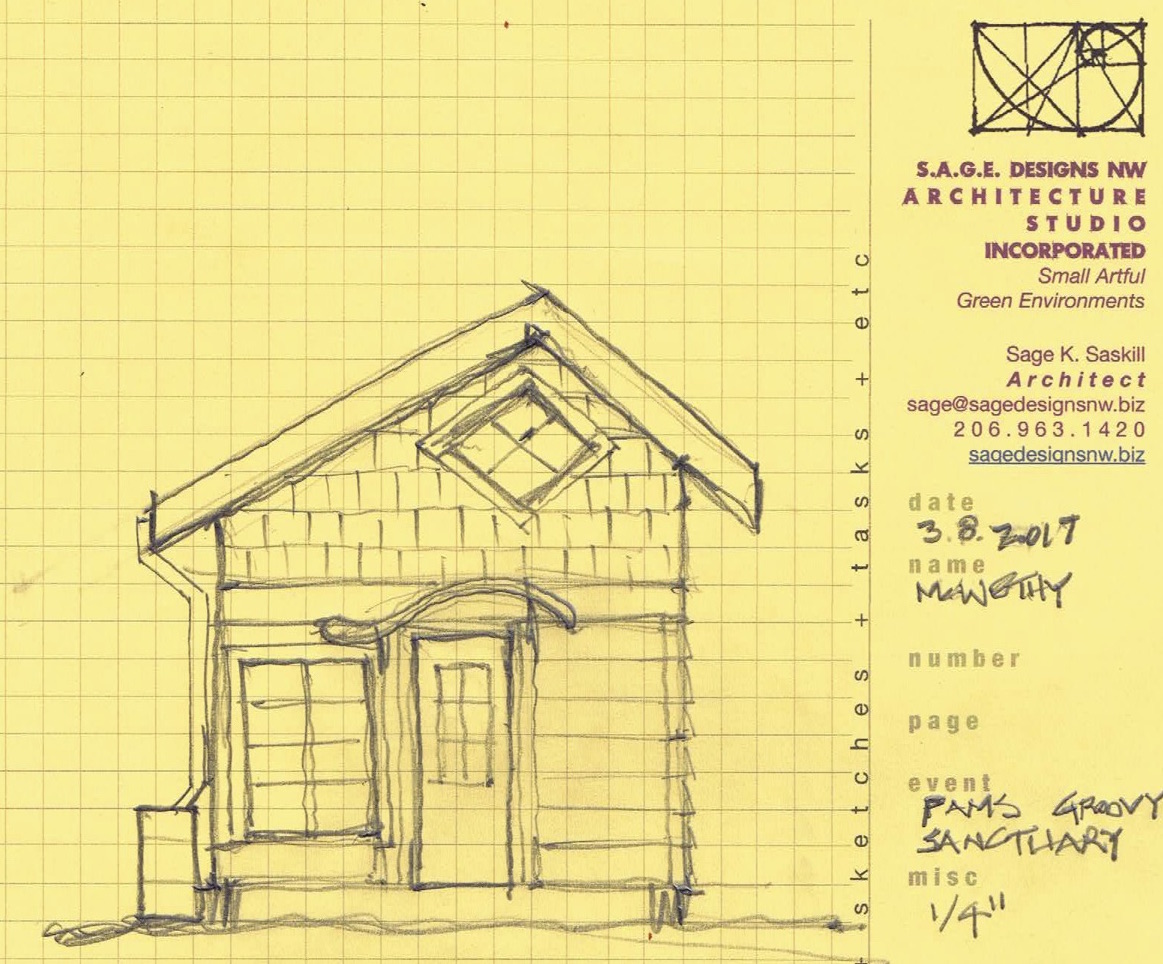 S.A.G.E. DESIGNS NW
ARCHITECTURE
STUDIO
INCORPORATED
Small Artful
Green Environments
Sage K. Saskill
Architect
sage@sagedesignsnw.biz
206.963.1420
sagedesignsnw.biz
date
3.8.2017
name
number
page
event
PAMS GROOVY
SANCTUARY
misc
1/4"
sketches + tasks + etc